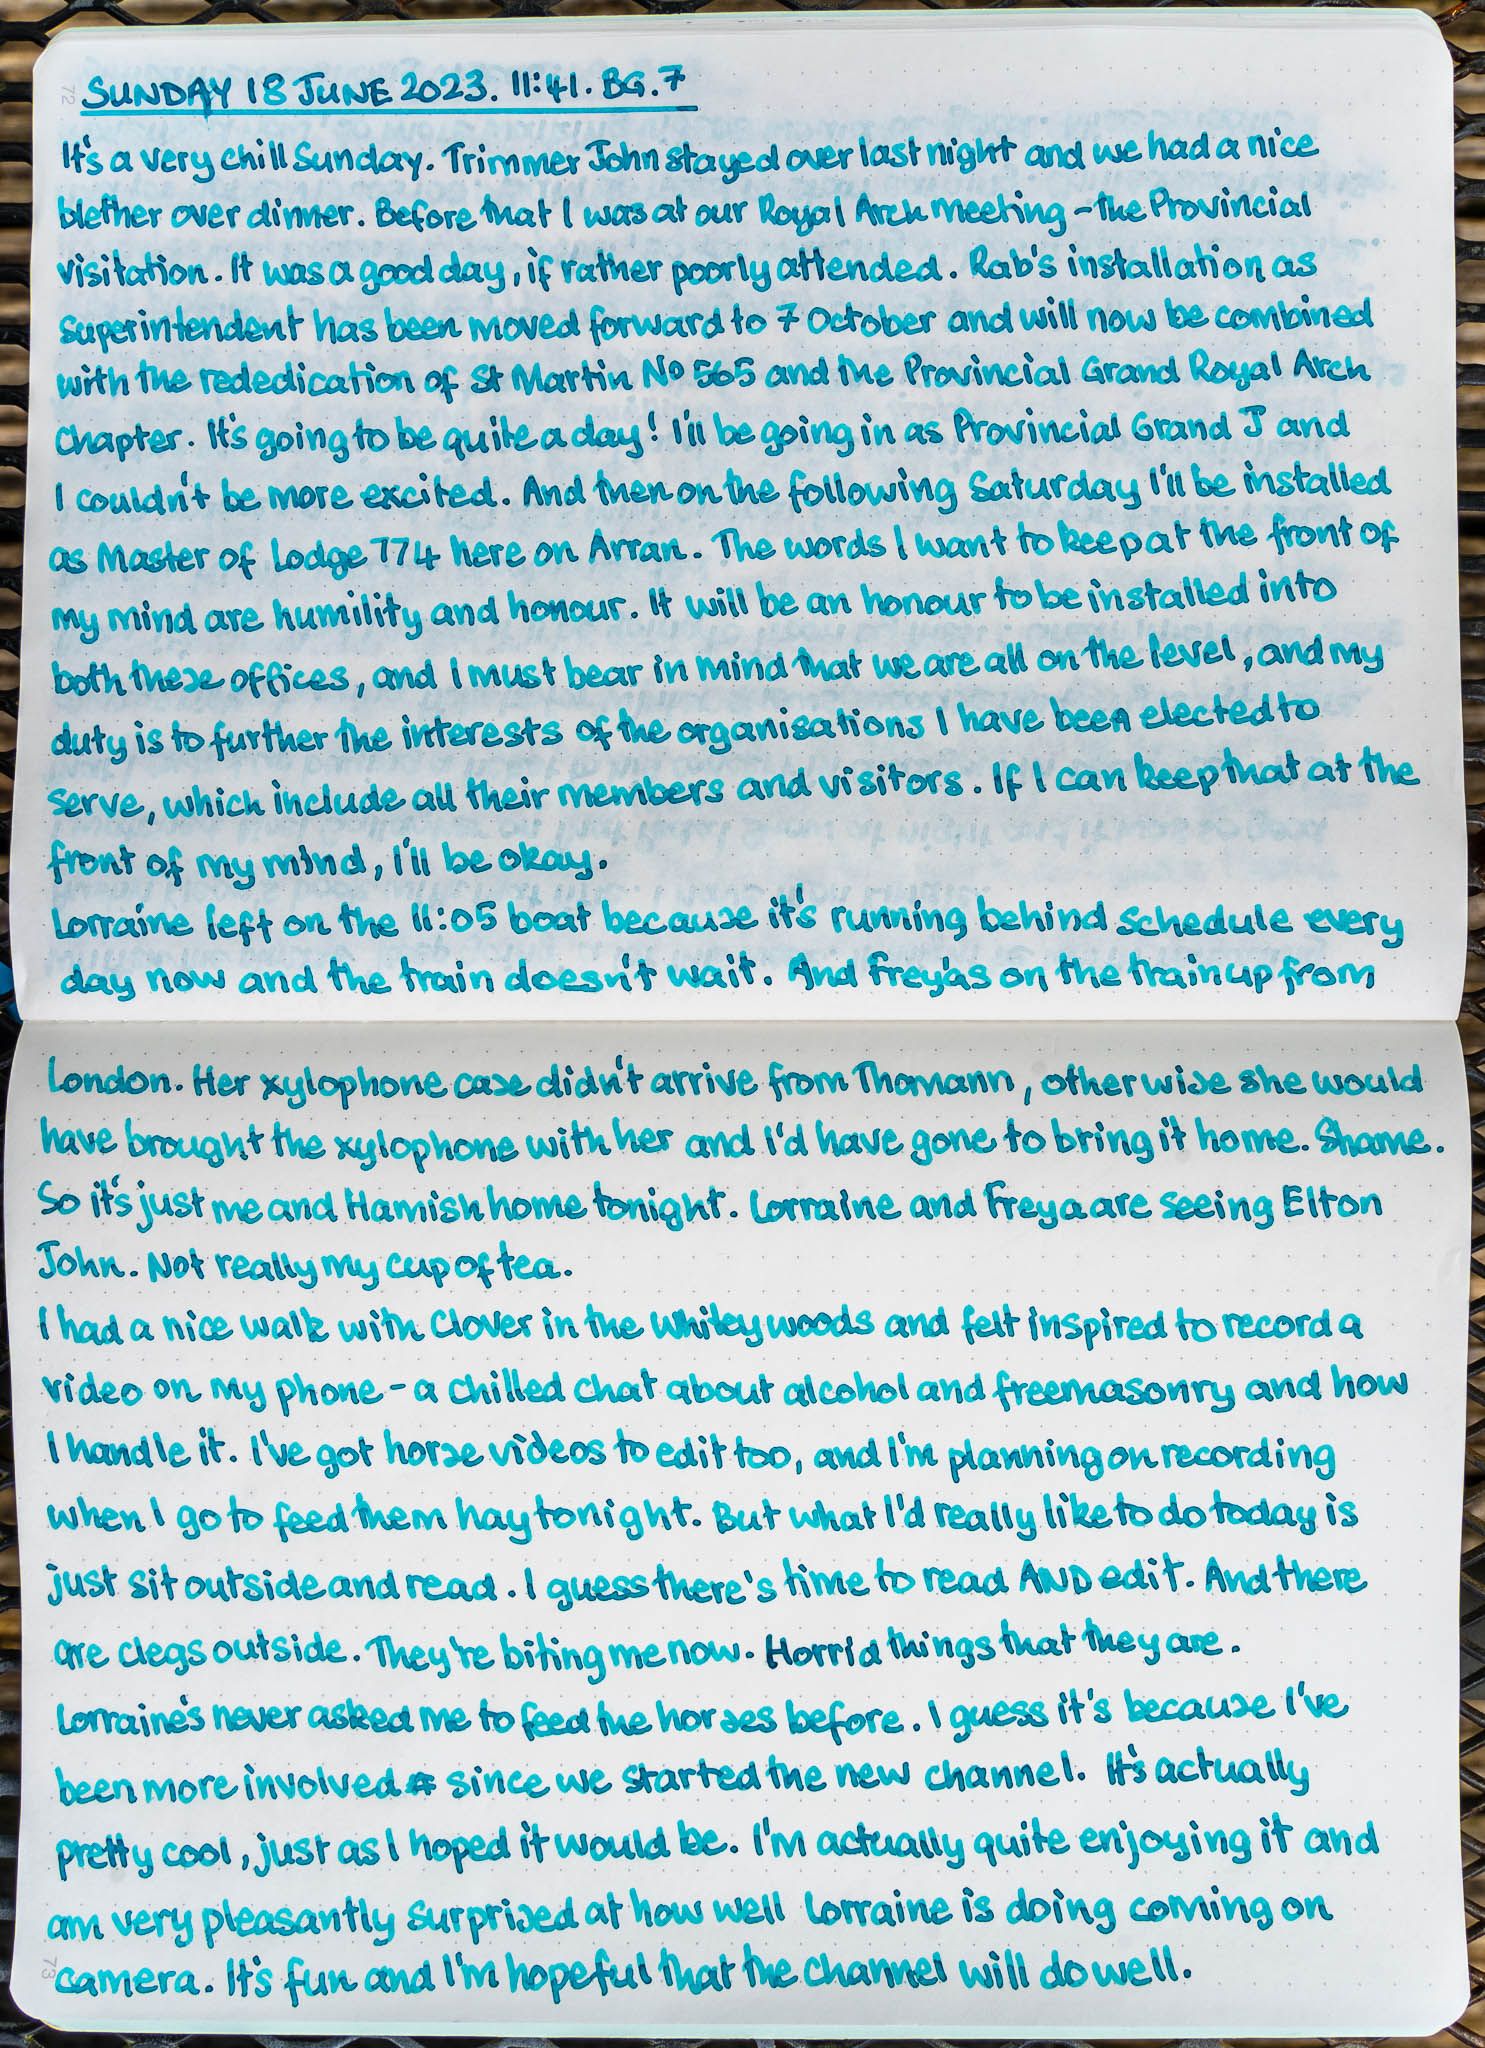 72
SUNDAY 18 JUNE 2023. 11:41. BG.7
It's a very chill Sunday. Trimmer John stayed over last night and we had a nice
blether over dinner. Before that I was at our Royal Arch meeting - the Provincial
visitation. It was a good day, if rather poorly attended. Rab's installation as
Superintendent has been moved forward to 7 October and will now be combined
with the rededication of St Martin No 565 and the Provincial Grand Royal Arch
Chapter. It's going to be quite a day! I'll be going in as Provincial Grand J and
I couldn't be more excited. And then on the following Saturday I'll be installed
as Master of Lodge 774 here on Arran. The words I want to keep at the front of
my mind are humility and honour. It will be an honour to be installed into
both these offices, and I must bear in mind that we are all on the level, and my
duty is to further the interests of the organisations I have been elected to
serve, which include all their members and visitors. If I can keep that at the
front of my mind, I'll be okay.
Lorraine left on the 11:05 boat because it's running behind schedule every
day now and the train doesn't wait. And Freya's on the train up from
London. Her xylophone case didn't arrive from Thomann, otherwise she would
have brought the xylophone with her and I'd have gone to bring it home. Shame.
So it's just me and Hamish home tonight. Lorraine and Freya are seeing Elton
John. Not really my cup of tea.
I had a nice walk with Clover in the Whitey woods and felt inspired to record a
video on my phone - a chilled chat about alcohol and freemasonry and how
I handle it. I've got horse videos to edit too, and I'm planning on recording
when I go to feed them hay tonight. But what I'd really like to do today is
just sit outside and read. I guess there's time to read AND edit. And there
are clegs outside. They're biting me now. Horrid things that they are.
Lorraine's never asked me to feed the horses before. I guess it's because I've
been more involved since we started the new channel. It's actually
pretty cool, just as I hoped it would be. I'm actually quite enjoying it and
am very pleasantly surprised at how well Lorraine is doing coming on
camera. It's fun and I'm hopeful that the channel will do well.
73